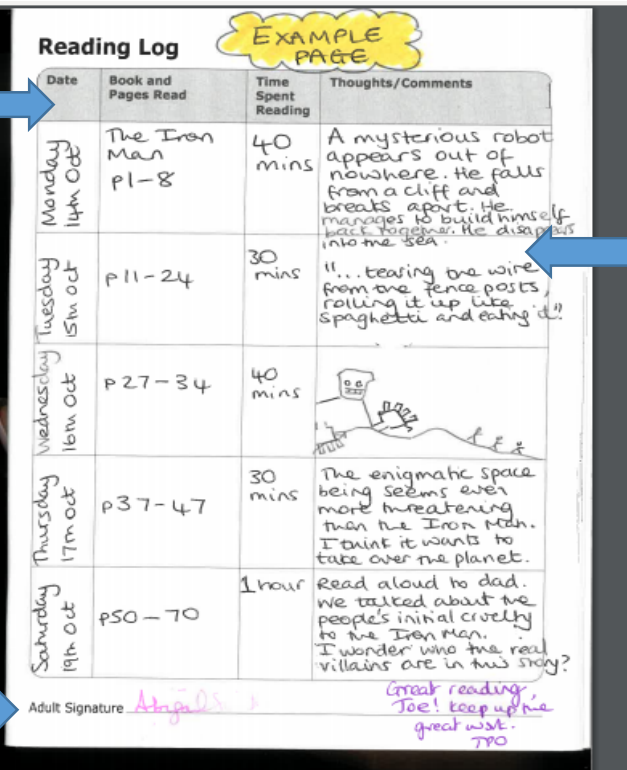 EXAMPLE
PAGE
Reading Log
Date
Book and
Pages Read
Time
Spent
Reading
Thoughts/Comments
Monday
14th Oct
The Iron
Man
p1-8
40
mins
A mysterious robot
appears out of
nowhere. He falls
from a cliff and
breaks apart. He
manages to build himself
back together. He disappears
into the sea.
Tuesday
15th Oct
p11-24
30
mins
"...tearing the wire
from the fence posts,
rolling it up like
spaghetti and eating it".
Wednesday
16th Oct
p27-34
40
mins
Thursday
17th Oct
p37-47
30
mins
The enigmatic space
being seems even
more threatening
than the Iron Man.
I think it wants to
take over the planet.
Saturday
19th Oct
p50-70
1 hour
Read aloud to dad.
We talked about the
people's initial cruelty
to the Iron Man.
I wonder who the real
villains are in this story?
Adult Signature
Great reading,
Joe! keep up the
great work.
TPO